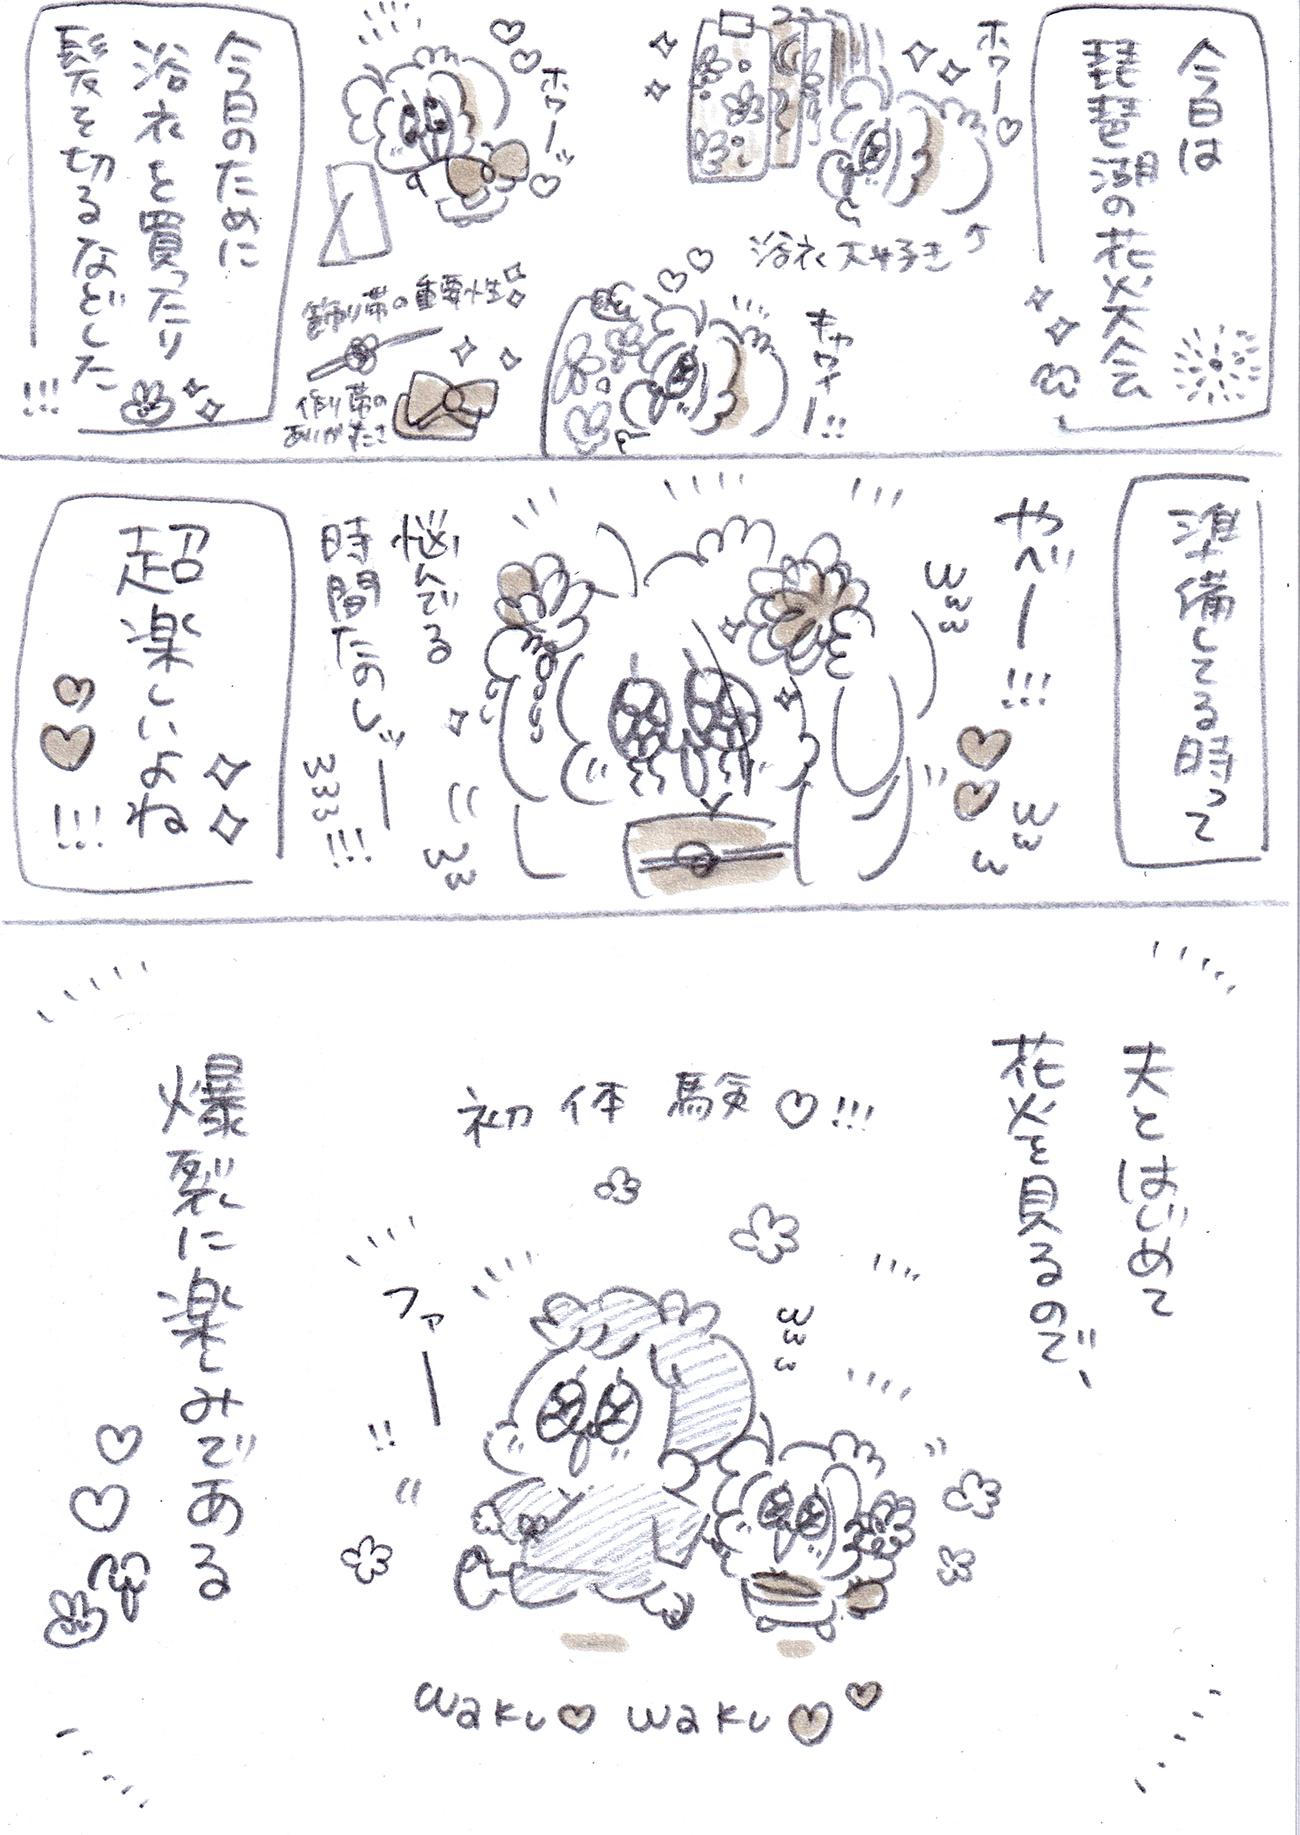 今日は
琵琶湖の花火大会
ホワーッ
浴衣大好き
キャワイー!!
ホワーッ
飾り帯の重要性
作り帯の
ありがたさ
今日のために
浴衣を買ったり
髪を切るなどした
!!!
準備してる時って
やべー!!!
悩んでる
時間たのしッー!!!
超楽しいよね
!!!
夫とはじめて
花火を見るので、
初体験♡!!!
ファー!!
爆裂に楽しみである
waku♡waku♡